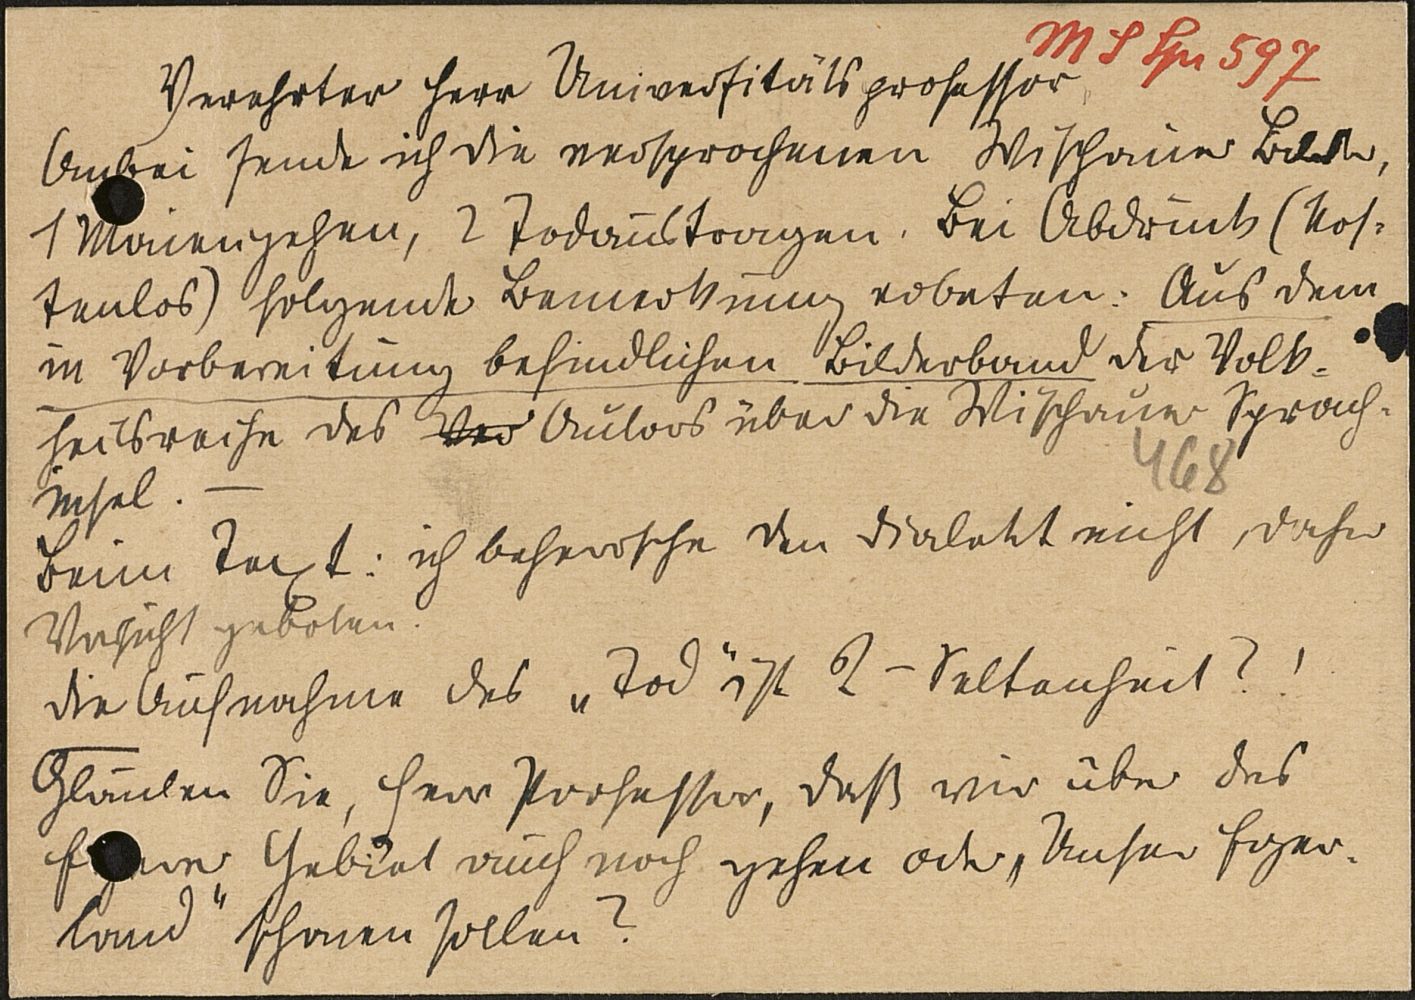 MS Spr 597
Verehrter Herr Universitätsprofessor
Anbei sende ich die versprochenen Wischauer Bilder,
1 Maiengehen, 2 Todaustragen. Bei Abdruck (kos-
tenlos) folgende Bemerkung erbeten: Aus dem
in Vorbereitung befindlichen Bilderband der Volk-
heitsreihe des Ver Autors über die Wischauer Sprach-
insel. —
468
Beim Text: ich beherrsche den Dialekt nicht, daher
Vorsicht geboten.
die Aufnahme des „Tod" ist – Seltenheit?!
Glauben Sie, Herr Professor, daß wir über das
Egerer Gebiet auch noch gehen oder „Unser Eger-
land" schonen sollen?